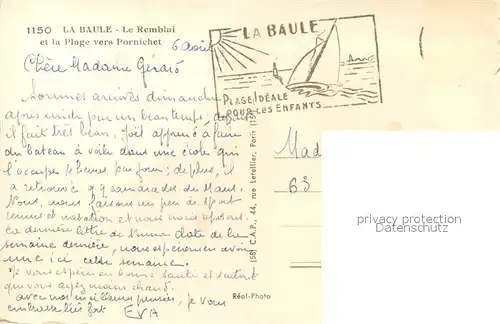 1150 LA BAULE - Le Remblai
et la Plage vers Pornichet
6 Août
LA BAULE
PLAGE IDÉALE
POUR LES ENFANTS
Chère Madame Gérard
Sommes arrivés dimanche
après midi par un beau temps, depuis
il fait très beau. Joël apprend à faire
du bateau à voile dans une école qui
l'occupe 4 heures par jour; de plus, il
a retrouvé camarades du Mans.
Nous, nous faisons un peu de sport
tennis et natation et nous nous reposons.
La dernière lettre de date de la
semaine dernière, nous espérons en avoir
une ici cette semaine.
Je vous espère en bonne santé et surtout
que vous ayez moins chaud.
avec nos meilleures pensées, je vous
embrasse très fort EVA
(58) C.A.P., 44, rue Letellier, Paris (15
Réal-Photo
Mad
63
privacy protection
Datenschutz